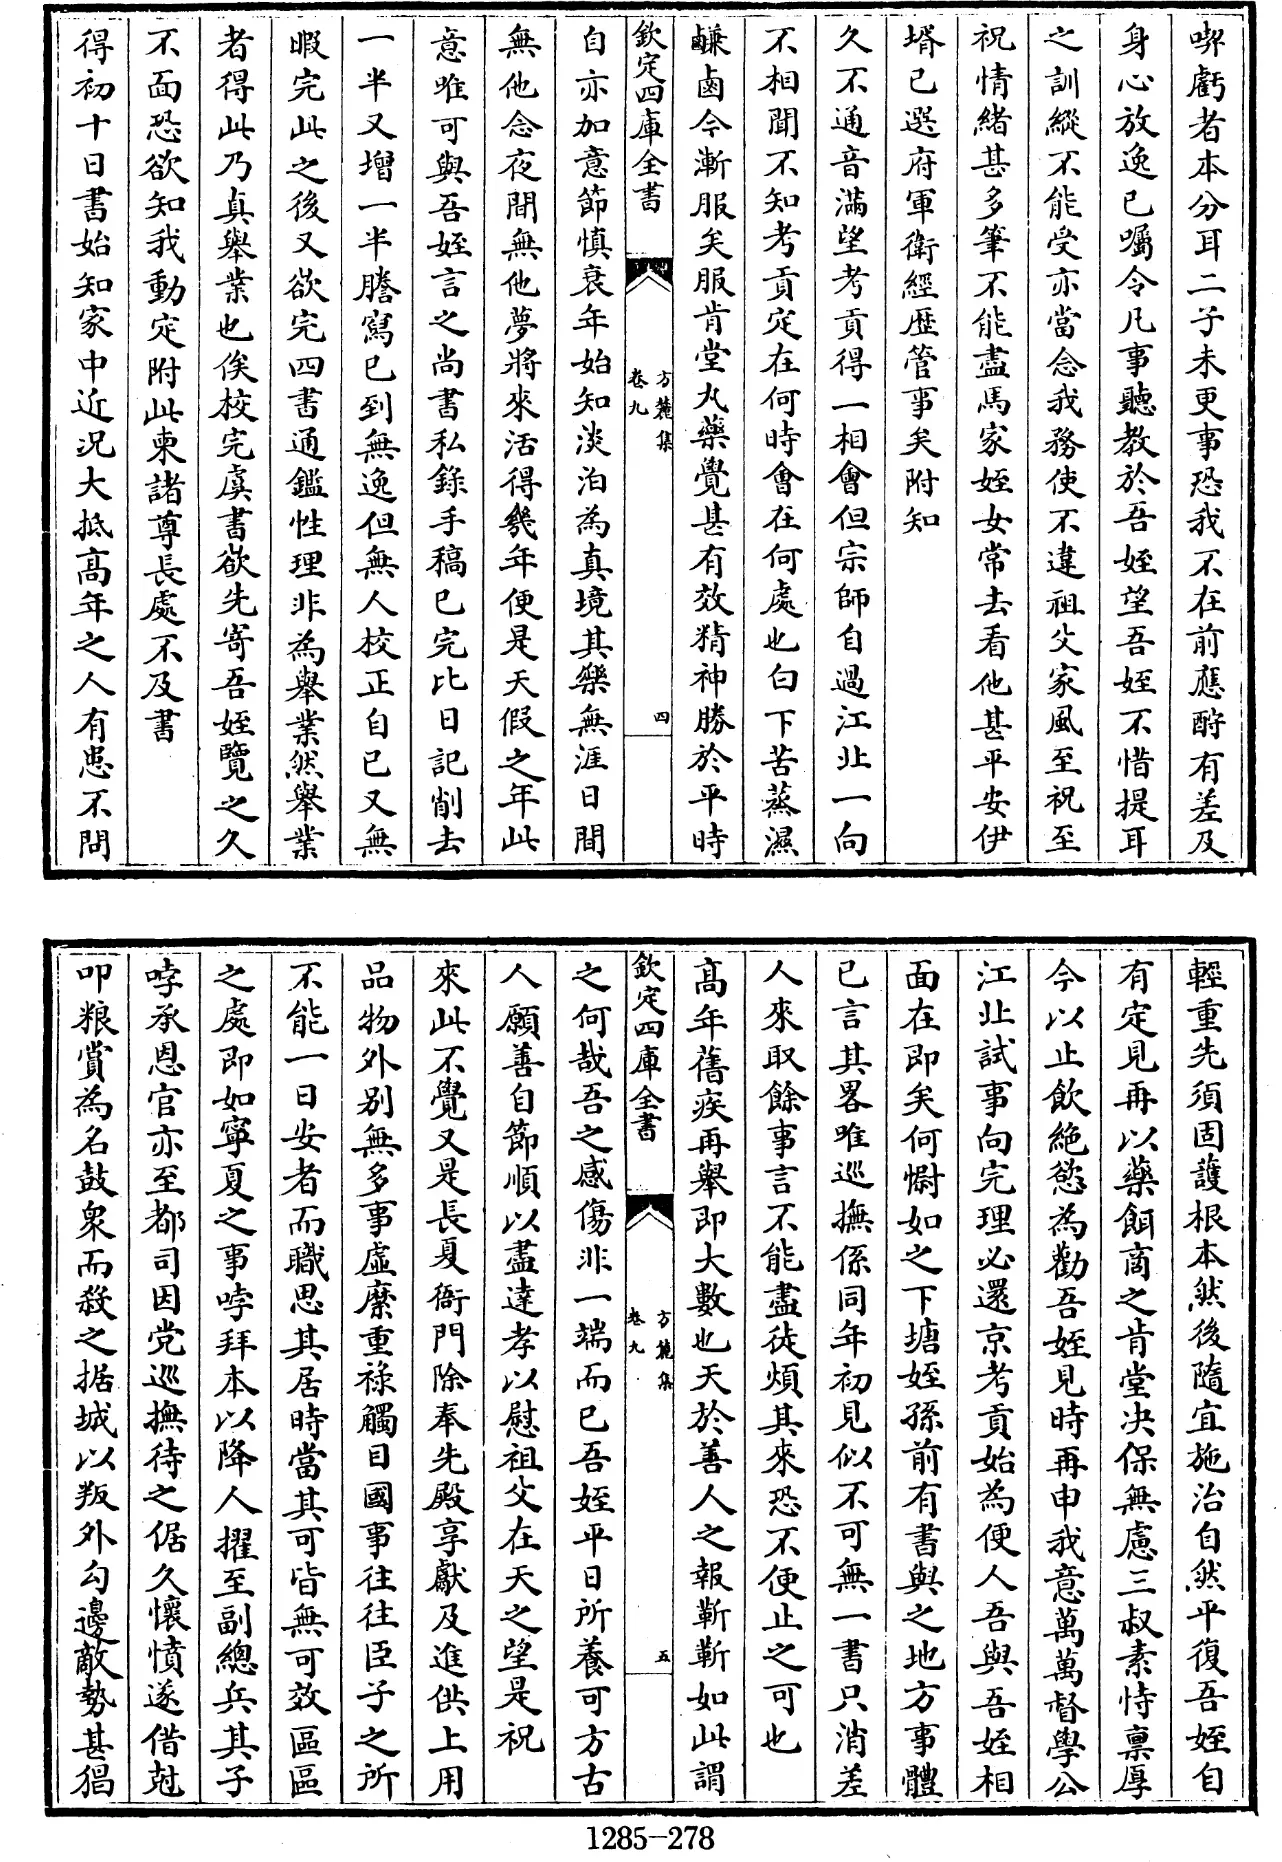 喫虧者本分耳二子未更事恐我不在前應酧有差及
身心放逸已囑令凡事聽教於吾姪望吾姪不惜提耳
之訓縱不能受亦當念我務使不違祖父家風至祝至
祝情緒甚多筆不能盡馬家姪女常去看他甚平安伊
壻已選府軍衛經歷管事矣附知
久不通音滿望考貢得一相會但宗師自過江北一向
不相聞不知考貢定在何時會在何處也白下苦蒸濕
鹻鹵今漸服矣服肯堂丸藥覺甚有效精神勝於平時
欽定四庫全書
方麓集
卷九
四
自亦加意節慎衰年始知淡泊為真境其樂無涯日間
無他念夜間無他夢將來活得幾年便是天假之年此
意唯可與吾姪言之尚書私錄手稿已完比日記削去
一半又增一半謄寫已到無逸但無人校正自已又無
暇完此之後又欲完四書通鑑性理非為舉業然舉業
者得此乃真舉業也俟校完虞書欲先寄吾姪覽之久
不面恐欲知我動定附此柬諸尊長處不及書
得初十日書始知家中近况大抵高年之人有患不問
輕重先須固護根本然後隨宜施治自然平復吾姪自
有定見再以藥餌商之肯堂决保無慮三叔素恃禀厚
今以止飲絶慾為勸吾姪見時再申我意萬萬督學公
江北試事向完理必還京考貢始為便人吾與吾姪相
面在即矣何慰如之下塘姪孫前有書與之地方事體
已言其畧唯巡撫係同年初見似不可無一書只消差
人來取餘事言不能盡徒煩其來恐不便止之可也
高年舊疾再舉即大數也天於善人之報靳靳如此謂
欽定四庫全書
方麓集
卷九
五
之何哉吾之感傷非一端而已吾姪平日所養可方古
人願善自節順以盡達孝以慰祖父在天之望是祝
來此不覺又是長夏衙門除奉先殿享獻及進供上用
品物外别無多事虛縻重祿觸目國事往往臣子之所
不能一日安者而職思其居時當其可皆無可效區區
之處即如寧夏之事哱拜本以降人擢至副總兵其子
哱承恩官亦至都司因党巡撫待之倨久懷憤遂借尅
叩粮賞為名鼓衆而殺之据城以叛外勾邊敵勢甚猖
1285-278